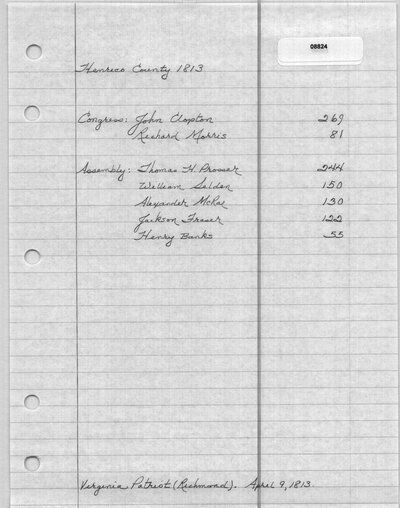 08824
Henrico County 1813
Congress: John Clopton 269
Richard Morris 81
Assembly: Thomas H. Prosser 244
William Selden 150
Alexander McRae 130
Jackson Fraser 122
Henry Banks 55
Virginia Patriot (Richmond). April 9, 1813.